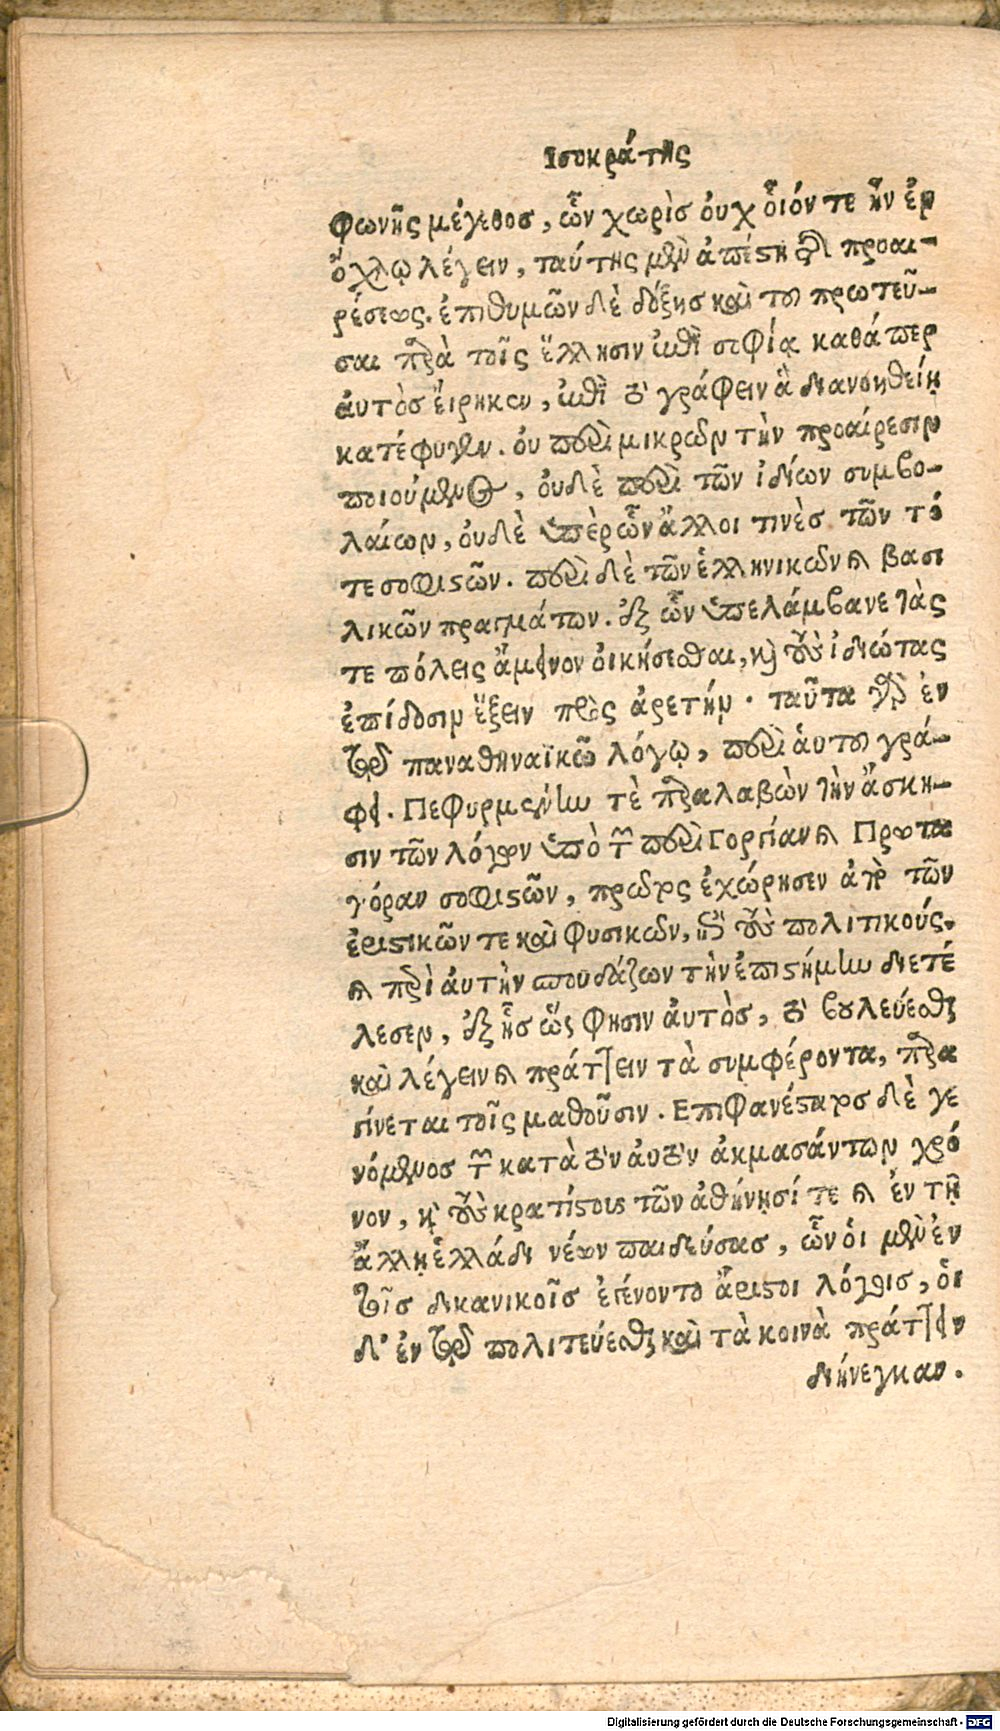 Ισοκράτης
φωνῆς μέγεθος, ὧν χωρὶς ὀυχ ὃιόν τε ἦν ἐν
ὄχλῳ λέγειν, ταύτης μὲν ἀπέστη τῆς προαι-
ρέσεως. ἐπιθυμῶν δὲ δόξης καὶ τοῦ πρωτεῦ-
σαι παρὰ τοῖς ἕλλησιν ἐπὶ σοφίᾳ καθάπερ
ἀυτὸς ἔιρηκεν, ἐπὶ τὸ γράφειν ἃ διανοηθείη
κατέφυγεν. ὀυ περὶ μικρῶν τὴν προαίρεσιν
ποιούμενος, ὀυδὲ περὶ τῶν ἰδίων συμβο-
λαίων, ὀυδὲ ὑπὲρ ὧν ἄλλοι τινὲς τῶν τό
τε σοφιστῶν. περὶ δὲ τῶν ἑλληνικῶν καὶ βασι
λικῶν πραγμάτων. ἐξ ὧν ὑπελάμβανε τάς
τε πόλεις ἄμεινον ὀικήσεσθαι, καὶ τοὺς ἰδιώτας
ἐπίδοσιν ἕξειν πρὸς ἀρετήν. ταῦτα γὰρ ἐν
τῷ παναθηναϊκῶ λόγῳ, περὶ ἁυτοῦ γρά-
φει. Πεφυρμένην τὲ παραλαβὼν τὴν ἄσκη-
σιν τῶν λόγων ὑπὸ τῶν περὶ Γοργίαν καὶ Πρωτα
γόραν σοφιστῶν, πρῶτος ἐχώρησεν ἀπὸ τῶν
ἐριστικῶν τε καὶ φυσικῶν, ἐπὶ τοὺς πολιτικούς.
καὶ περὶ ἀυτὴν σπουδάζων τὴν ἐπιστήμην διετέ
λεσεν, ἐξ ἧς ὥς φησιν ἀυτὸς, τὸ βουλεύεσθαι
καὶ λέγειν καὶ πράττειν τὰ συμφέροντα, παρα
γίνεται τοῖς μαθοῦσιν. Επιφανέστατος δὲ γε
νόμενος τῶν κατὰ τὸν ἀυτὸν ἀκμασάντων χρό
νον, καὶ τοὺς κρατίστους τῶν ἀθήνῃσί τε καὶ ἐν τῇ
ἄλλῃ ἑλλάδι νέων παιδεύσας, ὧν ὁι μὲν ἐν
τοῖς δικανικοῖς ἐγένοντο ἄριστοι λόγοις, ὁι
δ' ἐν τῷ πολιτεύεσθαι καὶ τὰ κοινὰ πράττειν
διήνεγκαν.
Digitalisierung gefördert durch die Deutsche Forschungsgemeinschaft - DFG